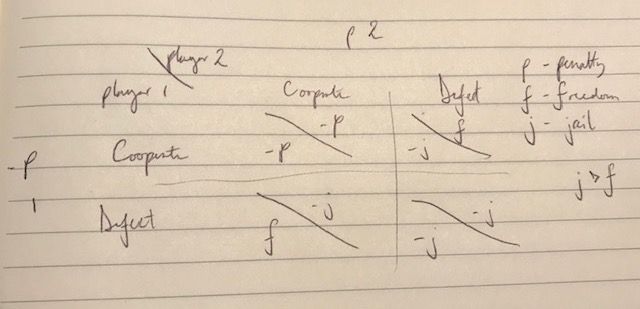 p 2
player 2
player 1
Cooperate
Defect
p - penalty
f - freedom
j - jail
-p
1
Cooperate
-p
-p
f
-j
j > f
Defect
-j
f
-j
-j